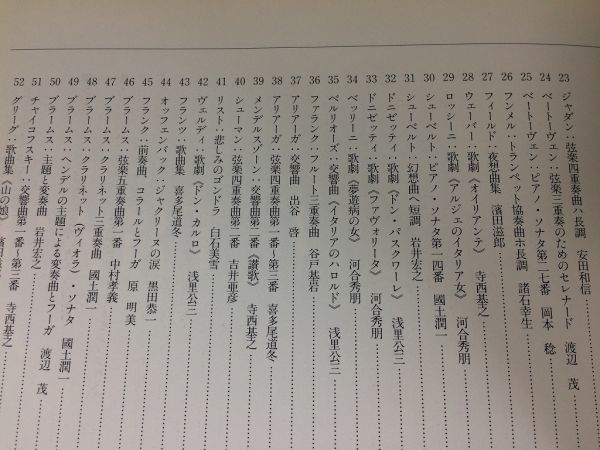 23 ジャダン:弦楽四重奏曲ハ長調 安田和信
24 ベートーヴェン:弦楽三重奏のためのセレナード 渡辺 茂
25 ベートーヴェン:ピアノ・ソナタ第二七番 岡本 稔
26 フンメル:トランペット協奏曲ホ長調 諸石幸生
27 フィールド:夜想曲集 濱田滋郎
28 ウェーバー:歌劇《オイリアンテ》 寺西基之
29 ロッシーニ:歌劇《アルジェのイタリア女》 河合秀朋
30 シューベルト:ピアノ・ソナタ第一四番 國土潤一
31 シューベルト:幻想曲ヘ短調 岩井宏之
32 ドニゼッティ:歌劇《ドン・パスクワーレ》 浅里公三
33 ドニゼッティ:歌劇《ファヴォリータ》 河合秀朋
34 ベッリーニ:歌劇《夢遊病の女》 河合秀朋
35 ベルリオーズ:交響曲《イタリアのハロルド》 浅里公三
36 ファランク:フルート三重奏曲 谷戸基岩
37 アリアーガ:交響曲 出谷 啓
38 アリアーガ:弦楽四重奏曲第一番~第三番 喜多尾道冬
39 メンデルスゾーン:交響曲第二番《讃歌》 寺西基之
40 シューマン:弦楽四重奏曲第二番 吉井亜彦
41 リスト:悲しみのゴンドラ 白石美雪
42 ヴェルディ:歌劇《ドン・カルロ》 浅里公三
43 フランツ:歌曲集 喜多尾道冬
44 オッフェンバック:ジャクリーヌの涙 黒田恭一
45 フランク:前奏曲、コラールとフーガ 原 明美
46 ブラームス:弦楽五重奏曲第一番 中村孝義
47 ブラームス:クラリネット三重奏曲 國土潤一
48 ブラームス:クラリネット(ヴィオラ)・ソナタ 國土潤一
49 ブラームス:ヘンデルの主題による変奏曲とフーガ 渡辺 茂
50 ブラームス:主題と変奏曲 岩井宏之
51 チャイコフスキー:交響曲第一番~第三番 寺西基之
52 グリーグ:歌曲集《山の娘》 濱田滋郎